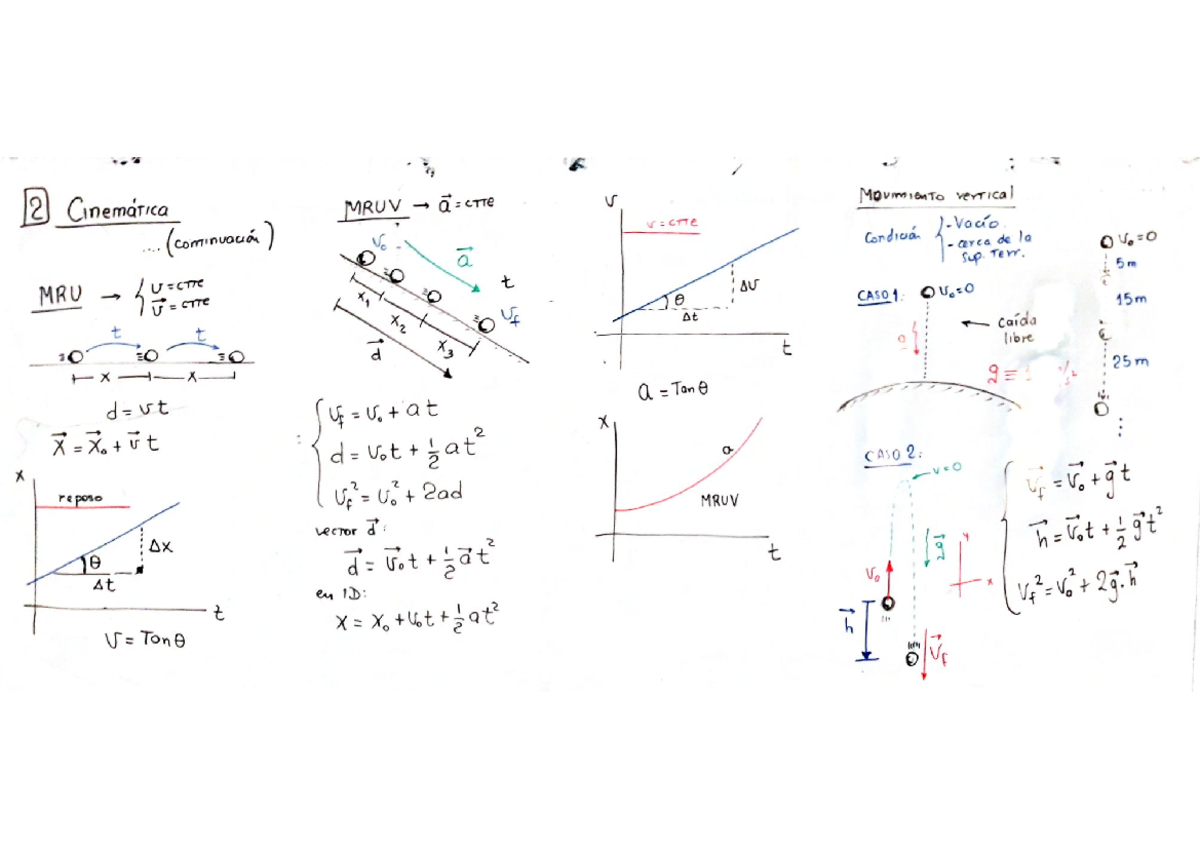 2 Cinemática
.... (continuación)
MRU → { v = CTTE
v⃗ = CTTE
t t
x x
d = v t
x⃗ = x⃗₀ + v⃗ t
x
reposo
θ
Δx
Δt
t
v = Tan θ
MRUV → a⃗ = CTTE
v₀
a⃗
t
x₁
x₂
x₃
v_f
d⃗
v_f = v₀ + a t
d = v₀t + ½ a t²
v_f² = v₀² + 2ad
vector d⃗:
d⃗ = v⃗₀t + ½ a⃗ t²
en 1D:
x = x₀ + v₀t + ½ a t²
v
v = CTTE
θ
Δv
Δt
t
a = Tan θ
x
a
MRUV
t
Movimiento vertical
Condición { - Vacío
- cerca de la
sup. Terr.
CASO 1:
v₀ = 0
← caída
libre
a
g ≡
v₀ = 0
5 m
15 m
25 m
⋮
CASO 2:
v = 0
g⃗
y
x
v₀
h⃗
v⃗_f
v⃗_f = v⃗₀ + g⃗ t
h⃗ = v⃗₀t + ½ g⃗ t²
v_f² = v₀² + 2g⃗ · h⃗